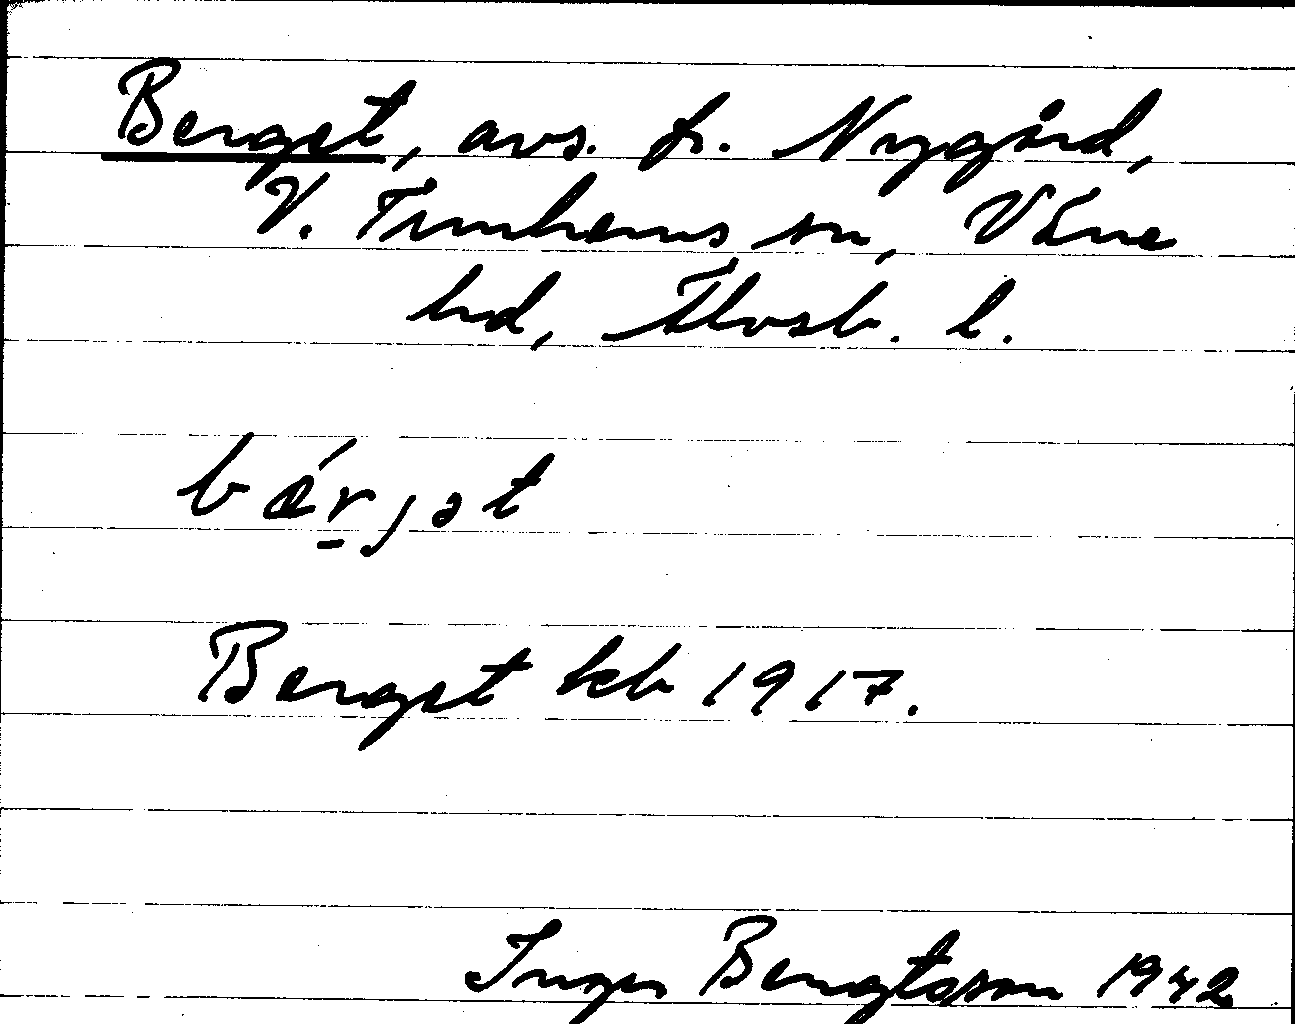 Berget, avs. fr. Nygård,
V. Tunhems sn, Väne
hd, Älvsb. l.
bǽr̲jət
Berget kb 1917.
Inger Bengtsson 1942